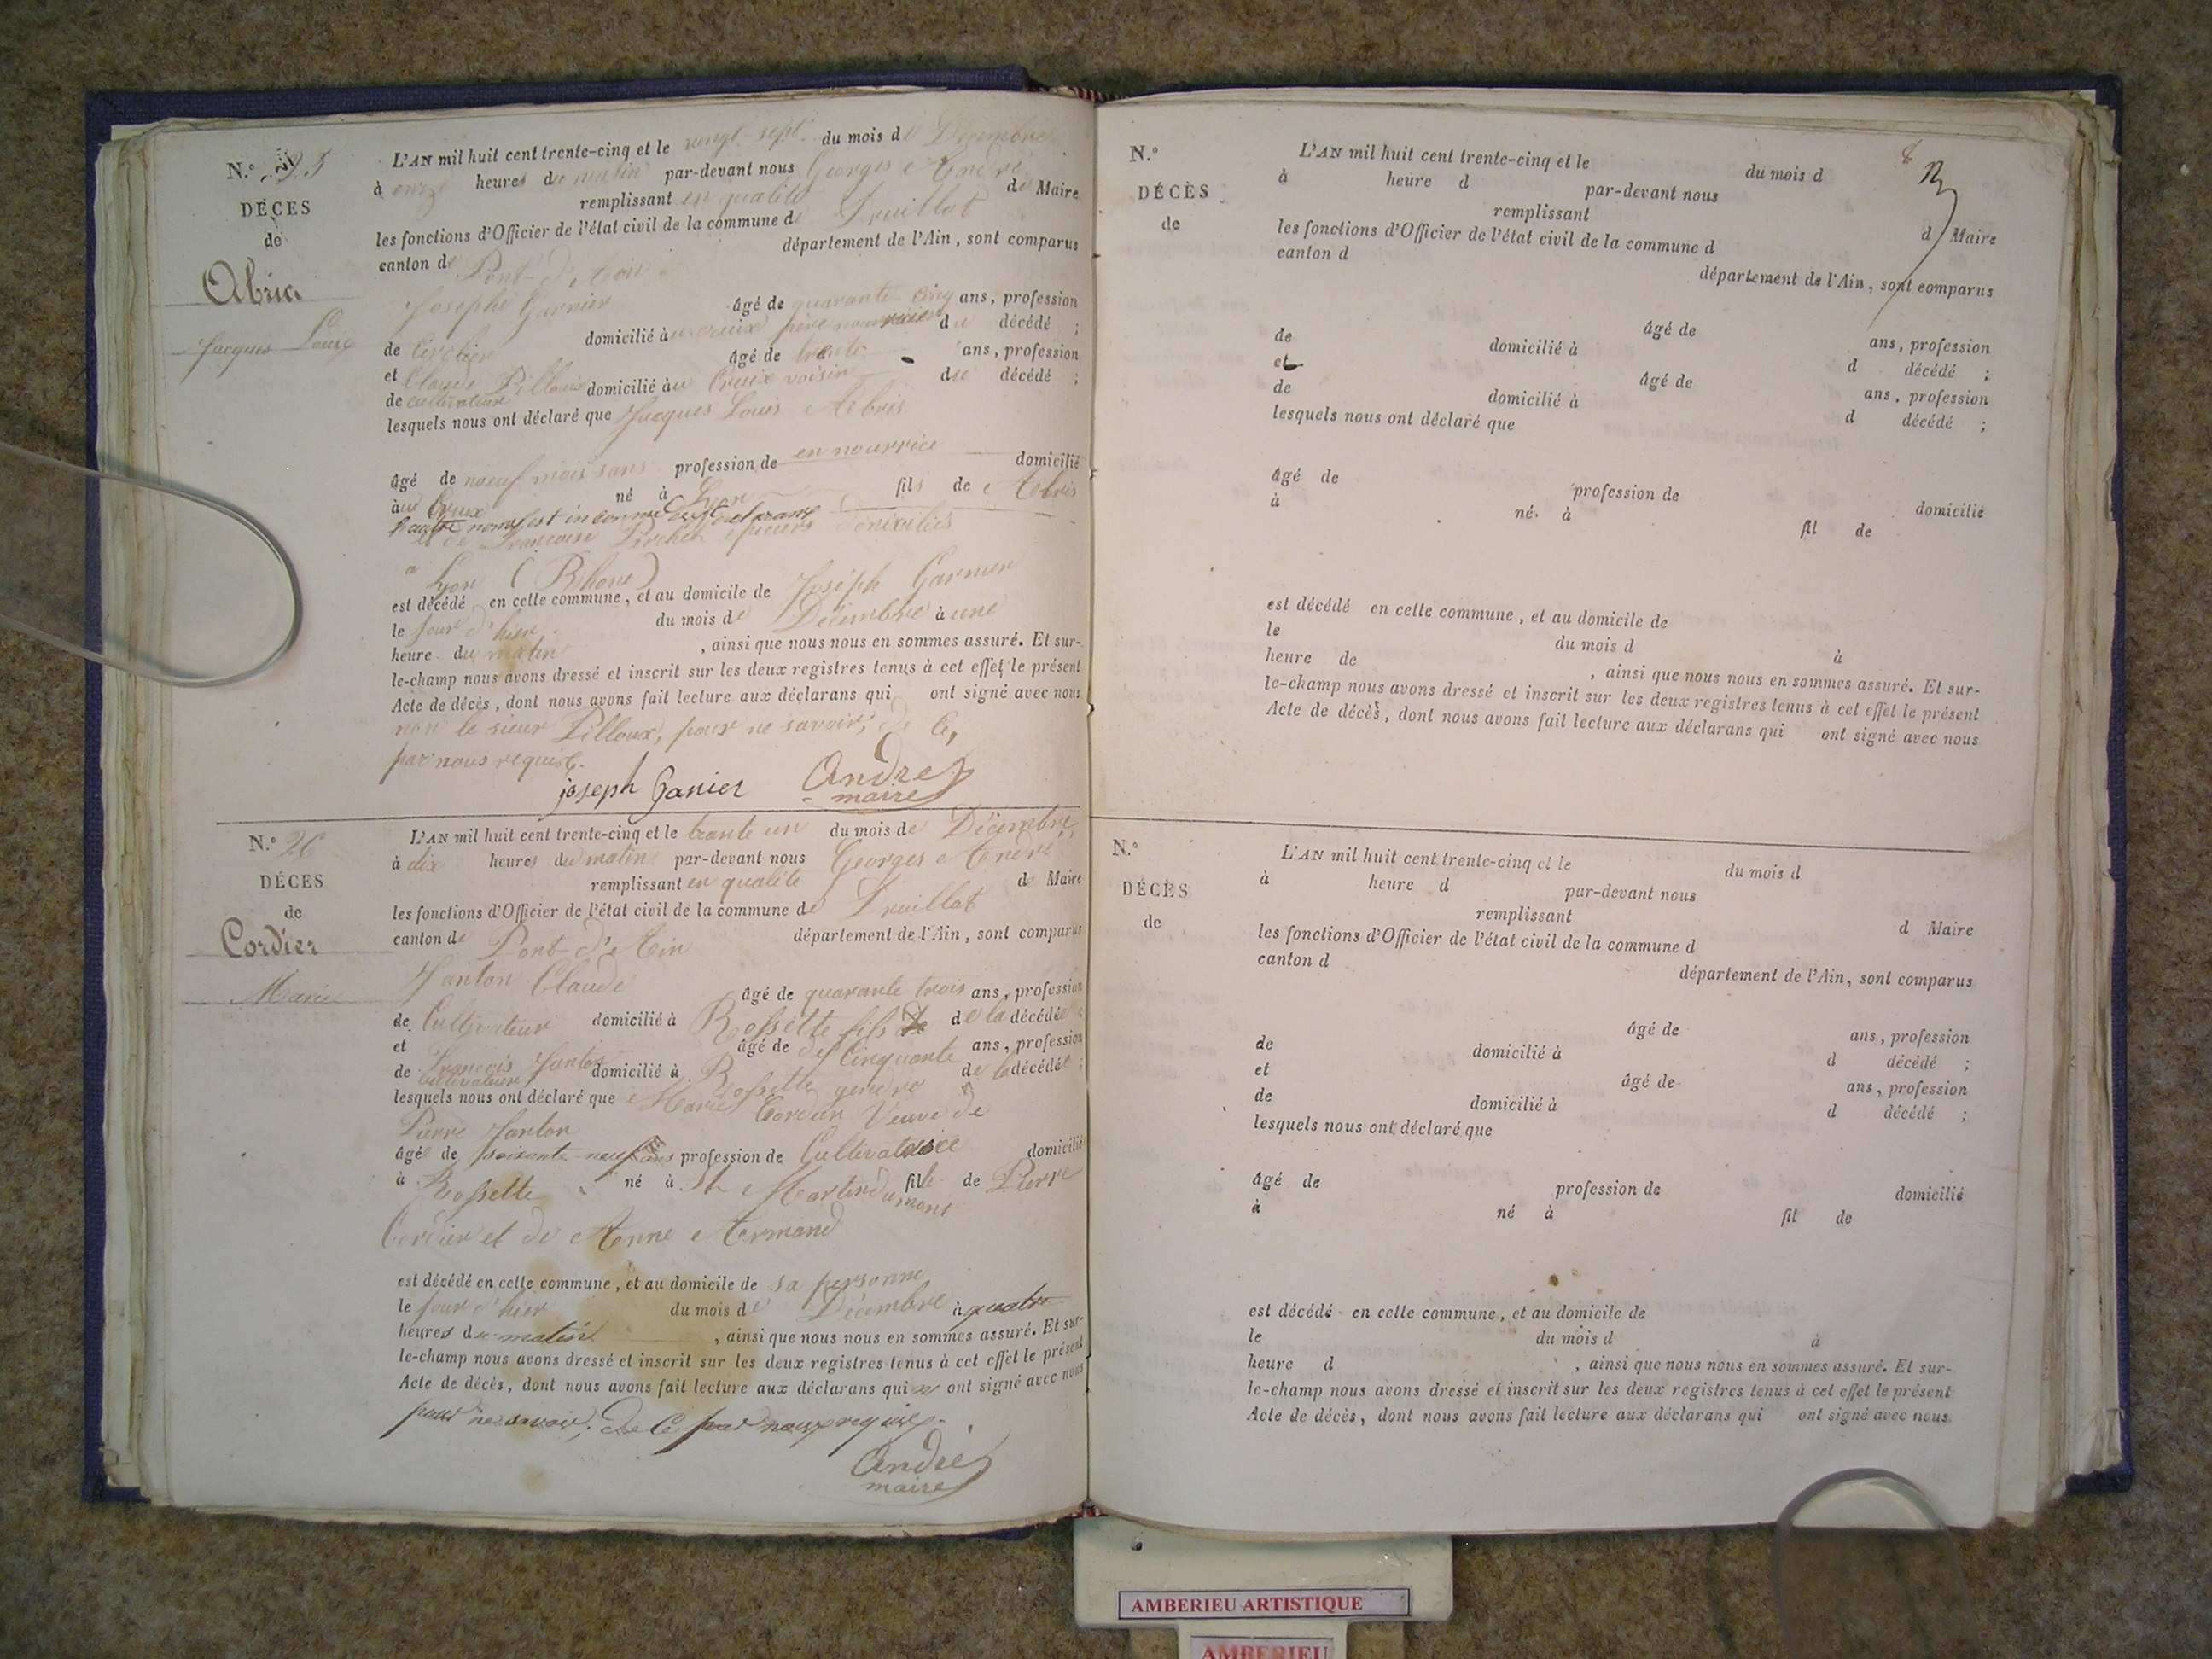 N.° 25
DÉCES
de
Abria
Jacques Louis
L'AN mil huit cent trente-cinq et le vingt-sept du mois de Decembre
à onze heures du matin par-devant nous Georges André
remplissant en qualité de Maire
les fonctions d'Officier de l'état civil de la commune de Druillat
canton de Pont-d'Ain département de l'Ain, sont comparus
Josephe Garnier âgé de quarante-cinq ans, profession
de domicilié au creux père nourricier du décédé ;
et Claude Pilloux âgé de trente ans, profession
de cultivateur domicilié au Creux voisin du décédé ;
lesquels nous ont déclaré que Jacques Louis Abris
âgé de neuf mois sans profession de en nourrice domicilié
au Creux né à Lyon fils de Abris
nom est inconnu
et de Françoise épiciers
à Lyon (Rhone)
est décédé en celle commune, et au domicile de Joseph Garnier
le jour d'hier du mois de Décembre à une
heure du matin , ainsi que nous nous en sommes assuré. Et sur-
le-champ nous avons dressé et inscrit sur les deux registres tenus à cet effet le présent
Acte de décès, dont nous avons fait lecture aux déclarans qui ont signé avec nous
non le sieur Pilloux, pour ne savoir, de Ce,
par nous requis.
joseph Ganier André
maire
N.° 26
DÉCES
de
Cordier
Marie
L'AN mil huit cent trente-cinq et le trante un du mois de Décembre
à dix heures du matin par-devant nous Georges André
remplissant en qualité de Maire
les fonctions d'Officier de l'état civil de la commune de Druillat
canton de Pont-d'Ain département de l'Ain, sont comparus
Janton Claude âgé de quarante trois ans, profession
de Cultivateur domicilié à Rossette fils de la décédée ;
et François Janton âgé de Cinquante ans, profession
de Cultivateur domicilié à Rossette gendre de la décédée ;
lesquels nous ont déclaré que Marie Cordier Veuve de
Pierre Janton
âgée de soixante-neuf ans profession de Cultivatrice domicilié
à Rossette né à St Martin du mont fille de Pierre
Cordier et de Anne Armand
est décédé en celle commune, et au domicile de sa personne
le jour d'hier du mois de Décembre à quatre
heures du matin , ainsi que nous nous en sommes assuré. Et sur-
le-champ nous avons dressé et inscrit sur les deux registres tenus à cet effet le présent
Acte de décès, dont nous avons fait lecture aux déclarans qui ont signé avec nous
pour ne savoir, de Ce par nous requis.
André
maire
N.°
DÉCÈS
de
L'AN mil huit cent trente-cinq et le du mois d
à heure d par-devant nous
remplissant d Maire
les fonctions d'Officier de l'état civil de la commune d
canton d département de l'Ain, sont comparus
âgé de ans, profession
de domicilié à d décédé ;
et âgé de ans, profession
de domicilié à d décédé ;
lesquels nous ont déclaré que
âgé de profession de domicilié
à né à fil de
est décédé en celle commune, et au domicile de
le du mois d à
heure de , ainsi que nous nous en sommes assuré. Et sur-
le-champ nous avons dressé et inscrit sur les deux registres tenus à cet effet le présent
Acte de décès, dont nous avons fait lecture aux déclarans qui ont signé avec nous
N.°
DÉCÈS
de
L'AN mil huit cent trente-cinq et le du mois d
à heure d par-devant nous
remplissant d Maire
les fonctions d'Officier de l'état civil de la commune d
canton d département de l'Ain, sont comparus
âgé de ans, profession
de domicilié à d décédé ;
et âgé de ans, profession
de domicilié à d décédé ;
lesquels nous ont déclaré que
âgé de profession de domicilié
à né à fil de
est décédé en celle commune, et au domicile de
le du mois d à
heure d , ainsi que nous nous en sommes assuré. Et sur-
le-champ nous avons dressé et inscrit sur les deux registres tenus à cet effet le présent
Acte de décès, dont nous avons fait lecture aux déclarans qui ont signé avec nous
AMBERIEU ARTISTIQUE
AMBERIEU